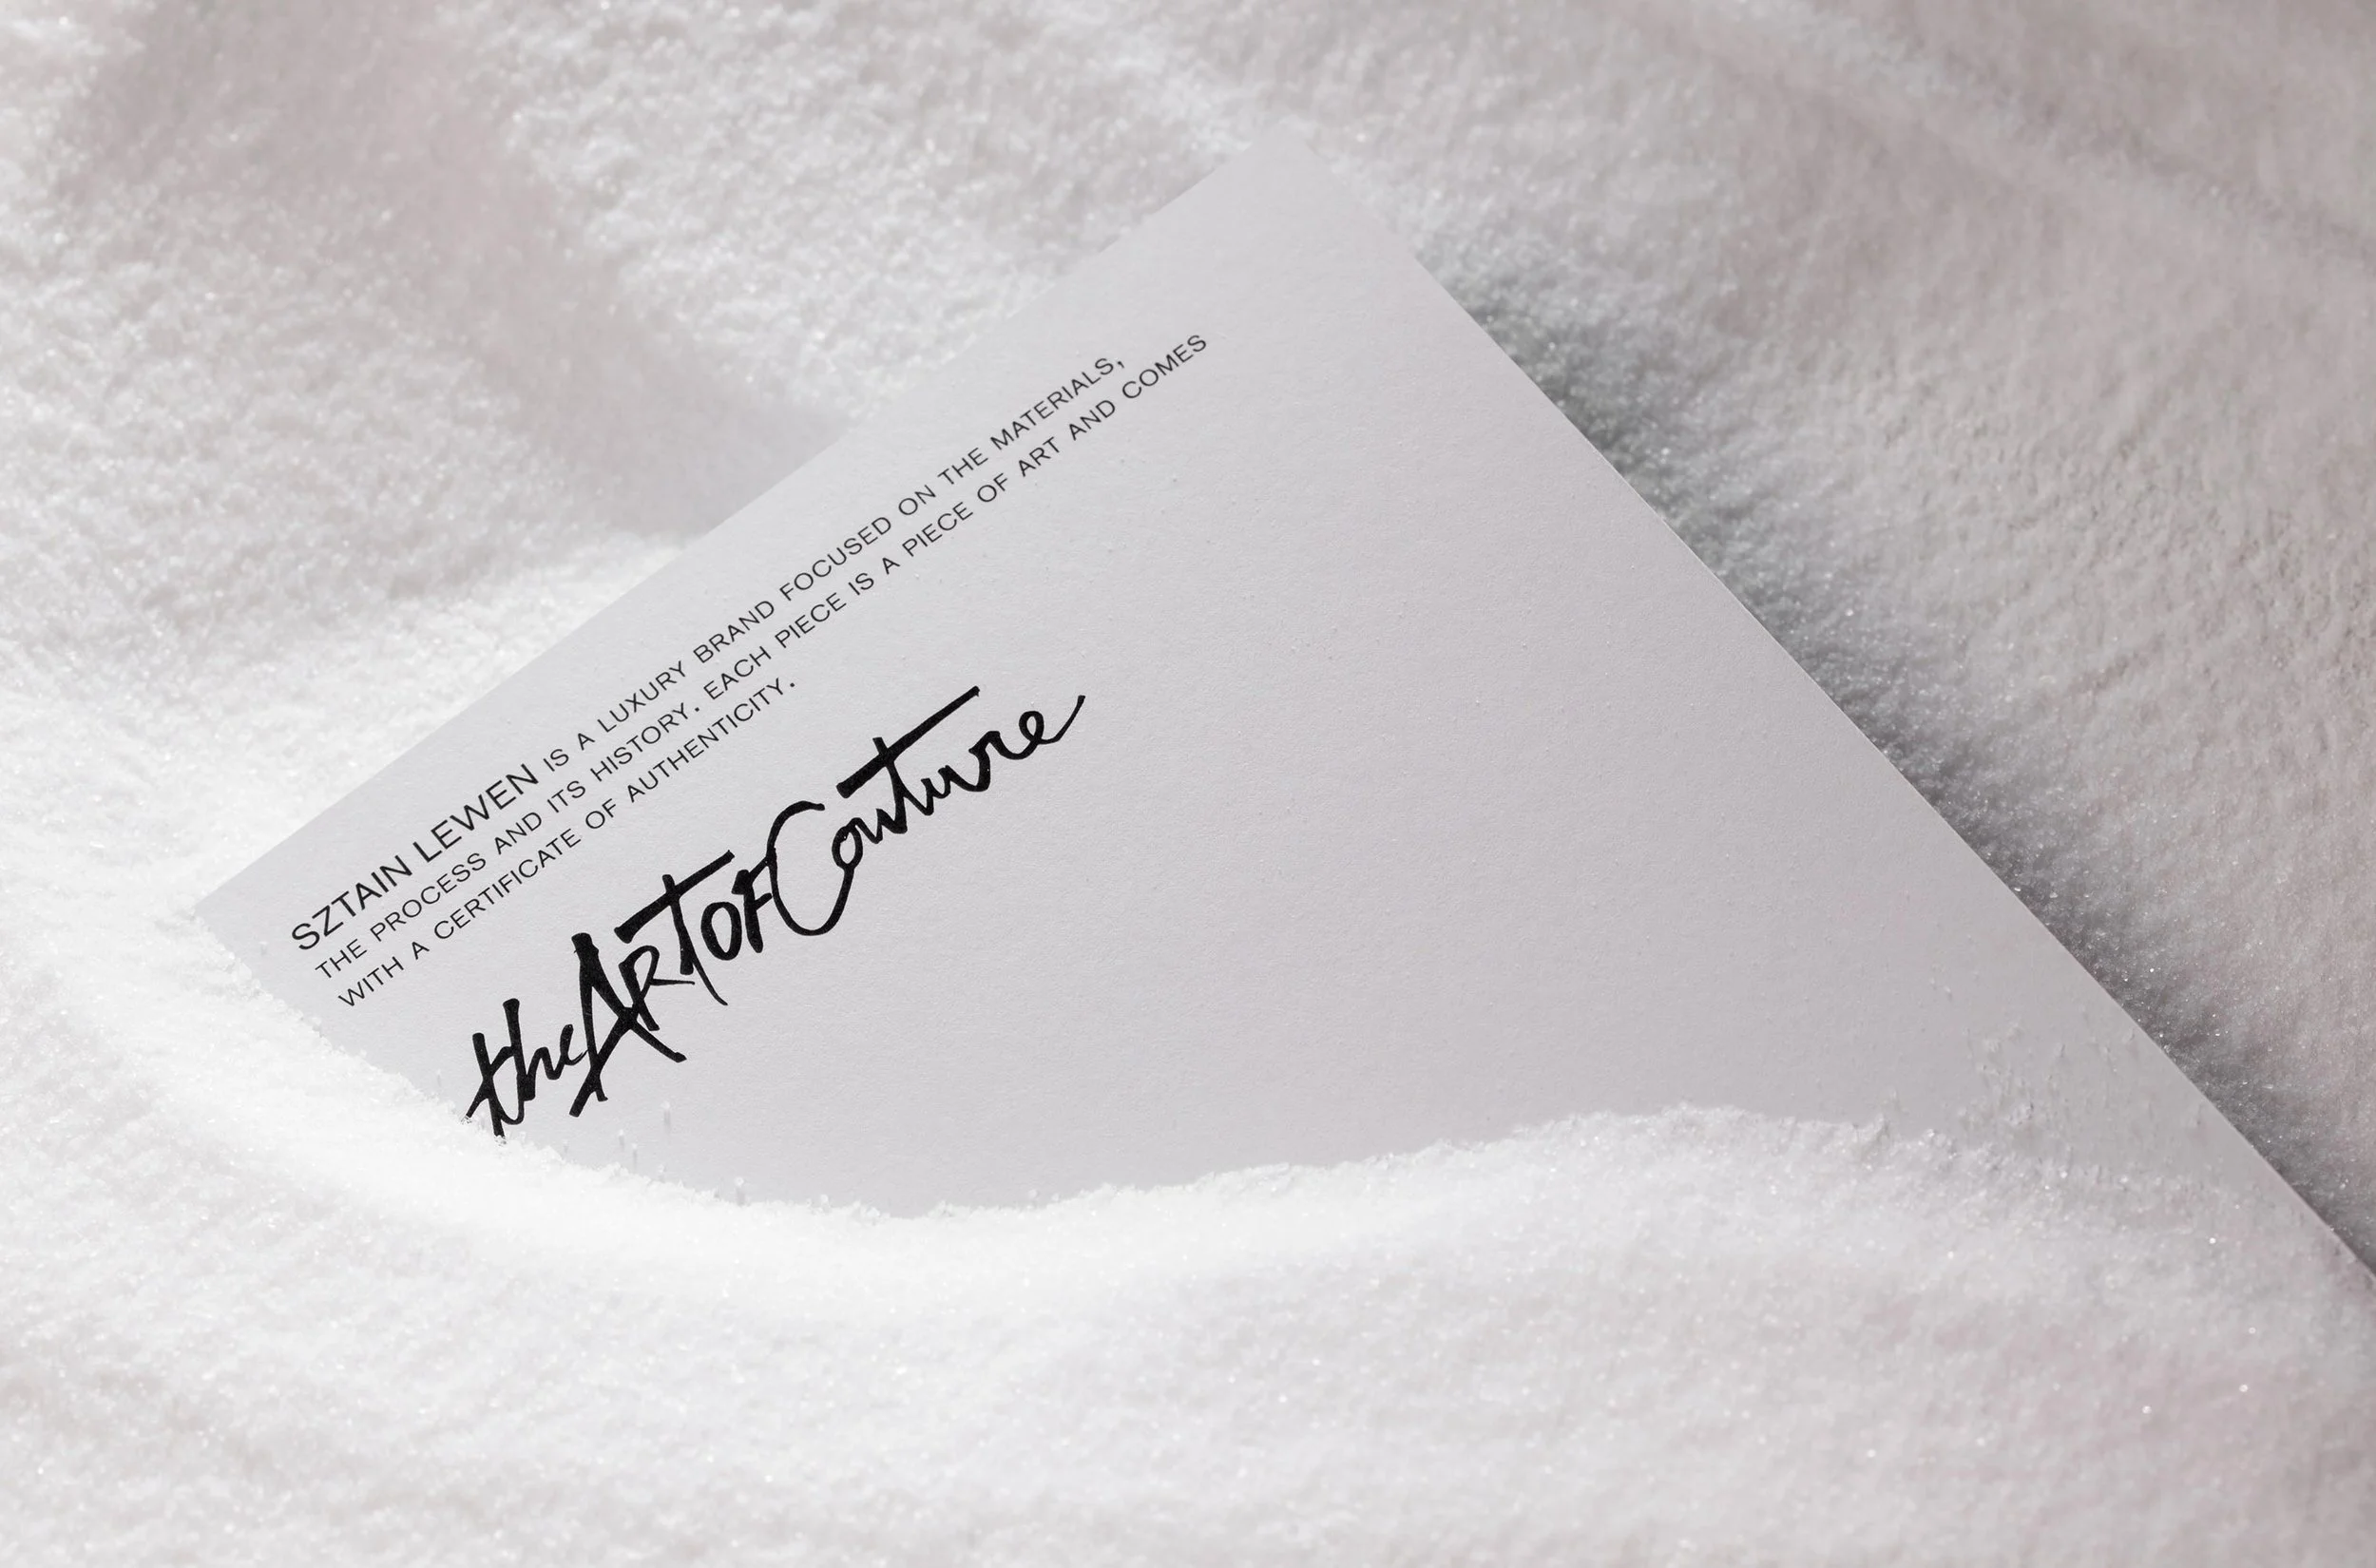 SZTAIN LEWEN IS A LUXURY BRAND FOCUSED ON THE MATERIALS,
THE PROCESS AND ITS HISTORY. EACH PIECE IS A PIECE OF ART AND COMES
WITH A CERTIFICATE OF AUTHENTICITY.
the ART OF Couture